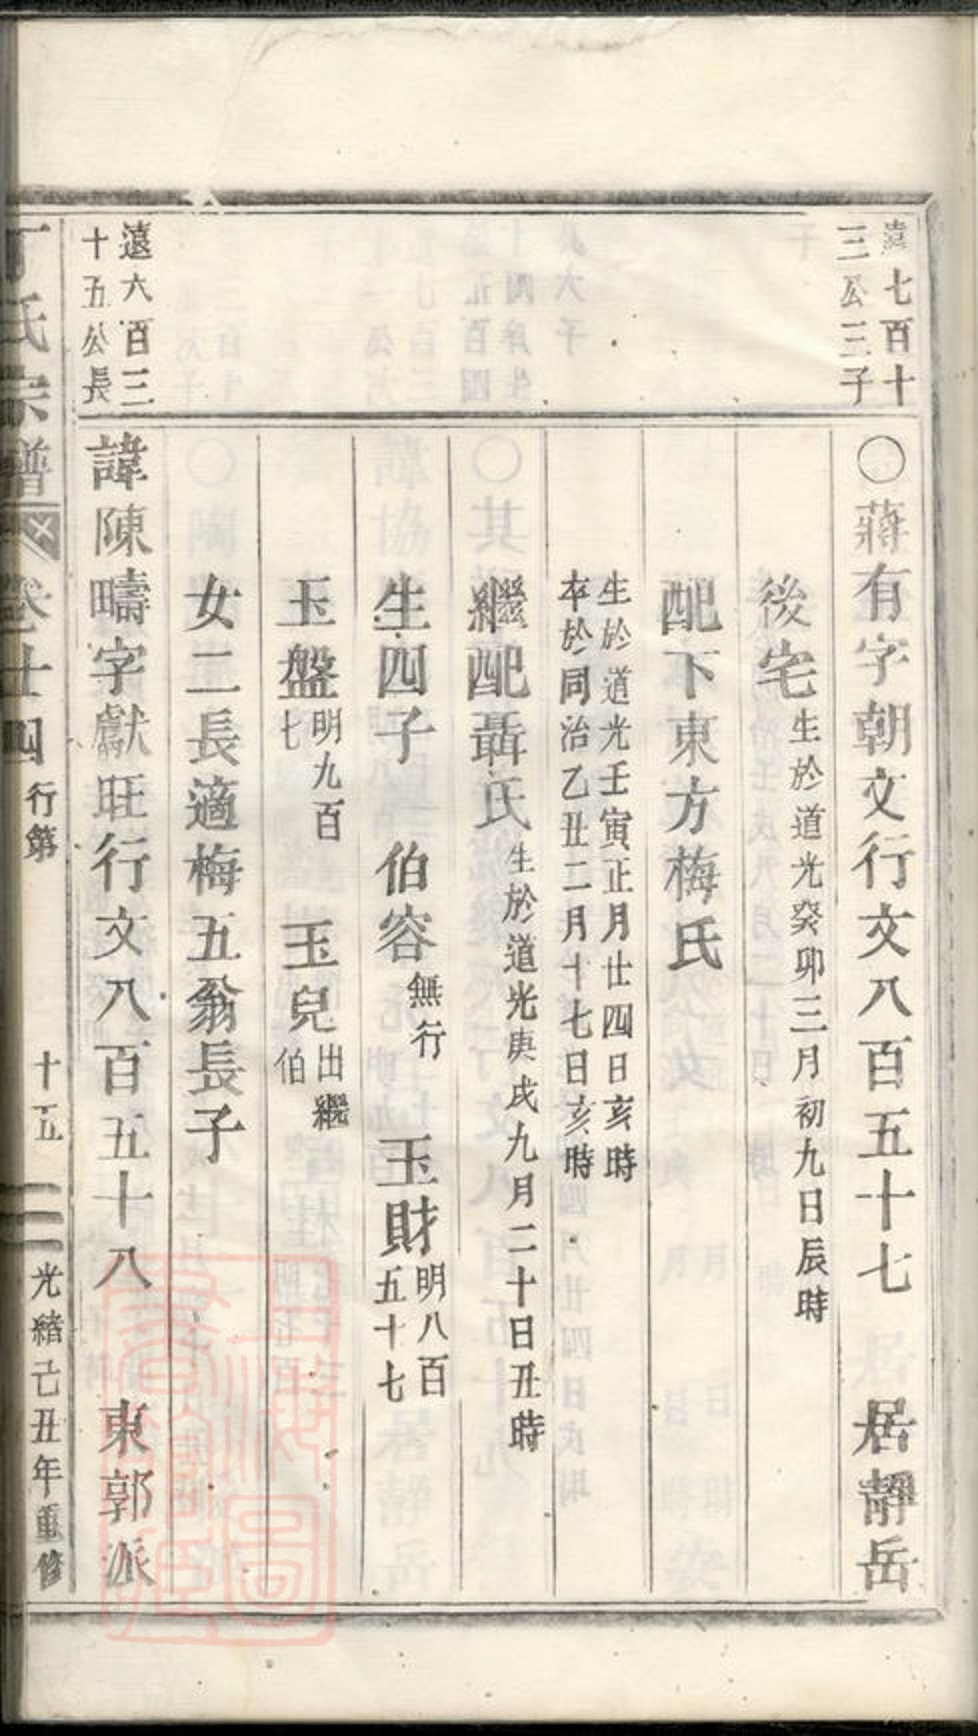 遠七百十
三公三子
〇蔣有字朝文行文八百五十七 居靜岳
後宅生於道光癸卯三月初九日辰時
配下東方梅氏
生於道光壬寅正月廿四日亥時
卒於同治乙丑二月十七日亥時
繼配聶氏生於道光庚戌九月二十日丑時
生四子 伯容無行 玉財明八百五十七
玉盤明九百七 玉兒出繼伯
女二長適梅五翁長子
遠六百三
十五公長
諱陳疇字獻旺行文八百五十八 東郭派
丁氏宗譜 卷廿四 行第 十五 光緒己丑年重修